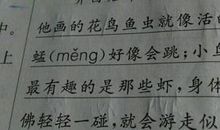 他画的花鸟鱼虫就像活
中。
蜢(měng)好像会跳；小
最有趣的是那些虾，身体
佛轻轻一碰，就会游走似